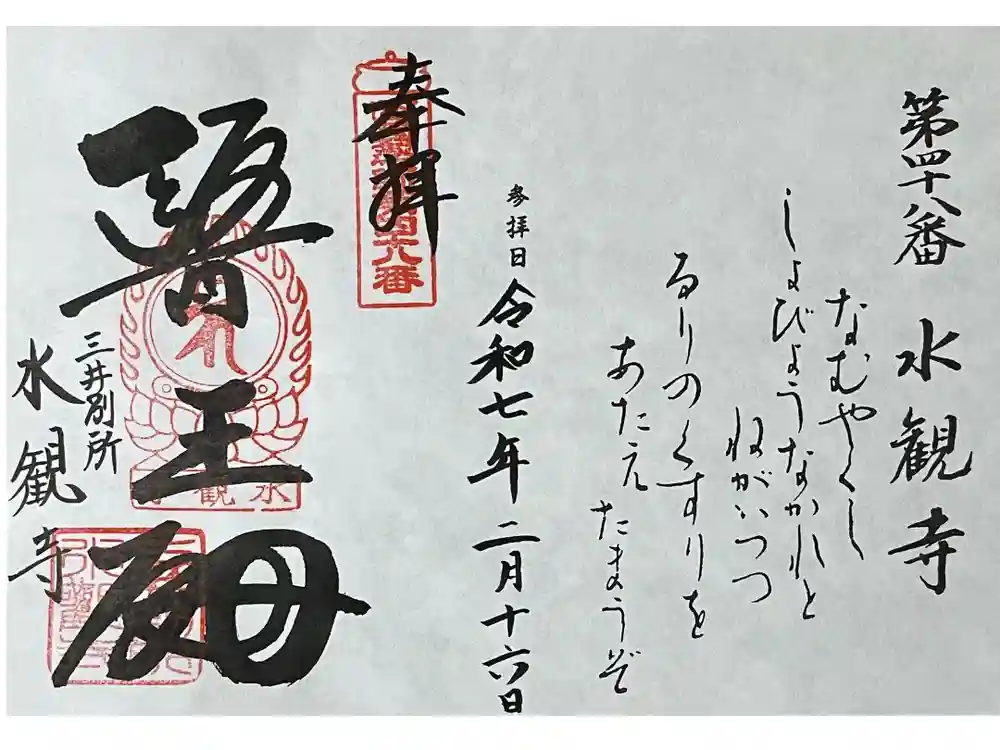 第四十八番 水観寺
なむやくし
しよびようなかれと
ねがいつつ
るりのくすりを
あたえたまうぞ
参拝日 令和七年二月十六日
奉拝
醫王殿
三井別所
水観寺
水観寺